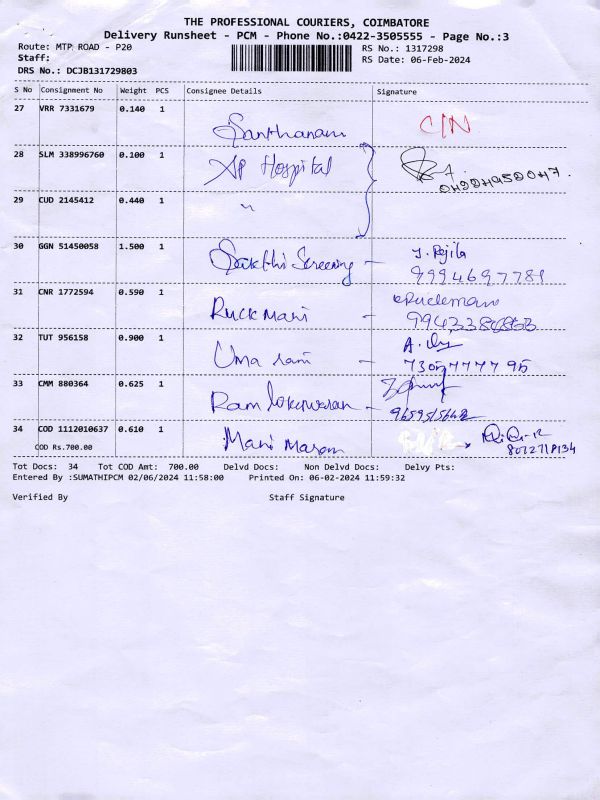 THE PROFESSIONAL COURIERS, COIMBATORE
Delivery Runsheet - PCM - Phone No.:0422-3505555 - Page No.:3
Route: MTP ROAD - P20 RS No.: 1317298
Staff: RS Date: 06-Feb-2024
DRS No.: DCJB131729803
S No Consignment No Weight PCS Consignee Details Signature
27 VRR 7331679 0.140 1 Santhanam C/N
28 SLM 338996760 0.100 1 Hospital
29 CUD 2145412 0.440 1 "
30 GGN 51450058 1.500 1 Sakthi Screening - J. Rejila
9994697781
31 CNR 1772594 0.590 1 Ruckmani
32 TUT 956158 0.900 1 Uma rani -
33 CMM 880364 0.625 1 Ram -
34 COD 1112010637 0.610 1 Mani
COD Rs.700.00
Tot Docs: 34 Tot COD Amt: 700.00 Delvd Docs: Non Delvd Docs: Delvy Pts:
Entered By :SUMATHIPCM 02/06/2024 11:58:00 Printed On: 06-02-2024 11:59:32
Verified By Staff Signature